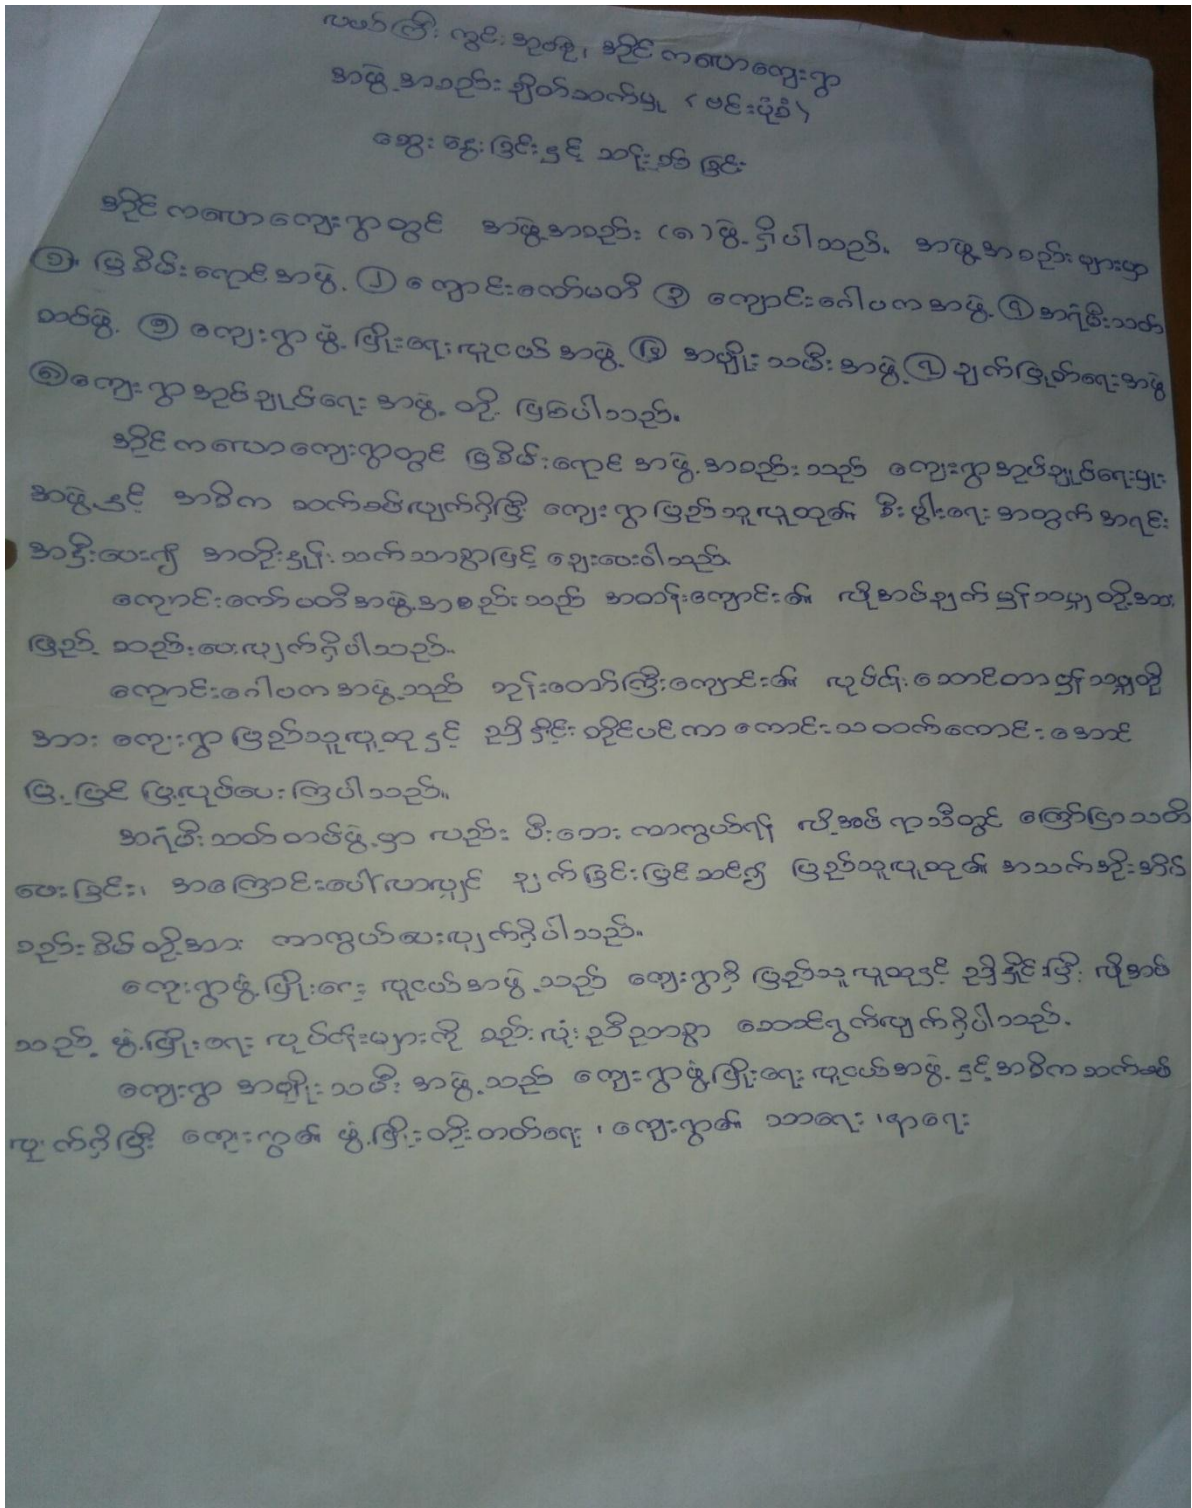 လယ်ကြီးကွင်းအုပ်စု၊ အိုင်ကလောကျေးရွာ
အဖွဲ့အစည်းချိတ်ဆက်မှု (ဗင်းပုံစံ)
ဆွေးနွေးခြင်းနှင့် သန်းစစ်ခြင်း
အိုင်ကလောကျေးရွာတွင် အဖွဲ့အစည်း (၈) ဖွဲ့ရှိပါသည်။ အဖွဲ့အစည်းများမှာ
၁။ မြစိမ်းရောင်အဖွဲ့ ၂ ကျောင်းကော်မတီ ၃ ကျောင်းဂေါပကအဖွဲ့ ၄ အရံမီးသတ်
တပ်ဖွဲ့ ၅ ကျေးရွာဖွံ့ဖြိုးရေးလူငယ်အဖွဲ့ ၆ အမျိုးသမီးအဖွဲ့ ၇ ချက်ပြုတ်ရေးအဖွဲ့
၈ ကျေးရွာအုပ်ချုပ်ရေးအဖွဲ့ တို့ ဖြစ်ပါသည်။
အိုင်ကလောကျေးရွာတွင် မြစိမ်းရောင်အဖွဲ့အစည်းသည် ကျေးရွာအုပ်ချုပ်ရေးမှုး
အဖွဲ့နှင့် အဓိက ဆက်စပ်လျက်ရှိပြီး ကျေးရွာပြည်သူလူထု၏ စီးပွါးရေးအတွက် အရင်း
အနှီးပေး၍ အတိုးနှုန်းသက်သာစွာဖြင့် ချေးပေးပါသည်
ကျောင်းကော်မတီအဖွဲ့အစည်းသည် အတန်းကျောင်း၏ လိုအပ်ချက်မှန်သမျှတို့အား
ဖြည့်ဆည်းပေးလျက်ရှိပါသည်။
ကျောင်းဂေါပကအဖွဲ့သည် ဘုန်းတော်ကြီးကျောင်း၏ လုပ်ငန်းဆောင်တာမှန်သမျှတို့
အား ကျေးရွာပြည်သူလူထုနှင့် ညှိနှိုင်းတိုင်ပင်ကာ ကောင်းသထက်ကောင်းအောင်
ပြုပြင် ပြုလုပ်ပေးကြပါသည်။
အရံမီးသတ်တပ်ဖွဲ့မှာ လည်း မီးဘေးကာကွယ်ရန် လိုအပ်ရာသီတွင် ကြော်ငြာသတိ
ပေးခြင်း၊ အကြောင်းပေါ်လာလျှင် ချက်ခြင်းပြင်ဆင်၍ ပြည်သူလူထု၏ အသက်အိုးအိမ်
စည်းစိမ်တို့အား ကာကွယ်ပေးလျက်ရှိပါသည်။
ကျေးရွာဖွံ့ဖြိုးရေးလူငယ်အဖွဲ့သည် ကျေးရွာရှိ ပြည်သူလူထုနှင့် ညှိနှိုင်းပြီး လိုအပ်
သည့် ဖွံ့ဖြိုးရေးလုပ်ငန်းများကို စည်းလုံးညီညာစွာ ဆောင်ရွက်လျက်ရှိပါသည်။
ကျေးရွာ အမျိုးသမီးအဖွဲ့သည် ကျေးရွာဖွံ့ဖြိုးရေးလူငယ်အဖွဲ့နှင့် အဓိကဆက်စပ်
လျက်ရှိပြီး ကျေးရွာ၏ ဖွံ့ဖြိုးတိုးတတ်ရေး၊ ကျေးရွာ၏ သာရေး၊ နာရေး